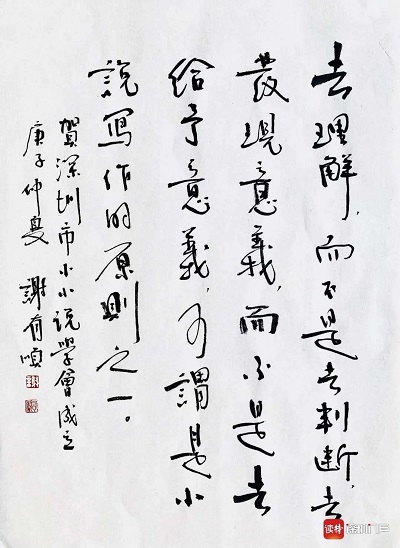 去理解，而不是去判断，去
發現意義，而不是去
給予意義，可謂是小
説寫作的原則之一。
賀深圳市小小説學會成立
庚子仲夏 謝有順
读特